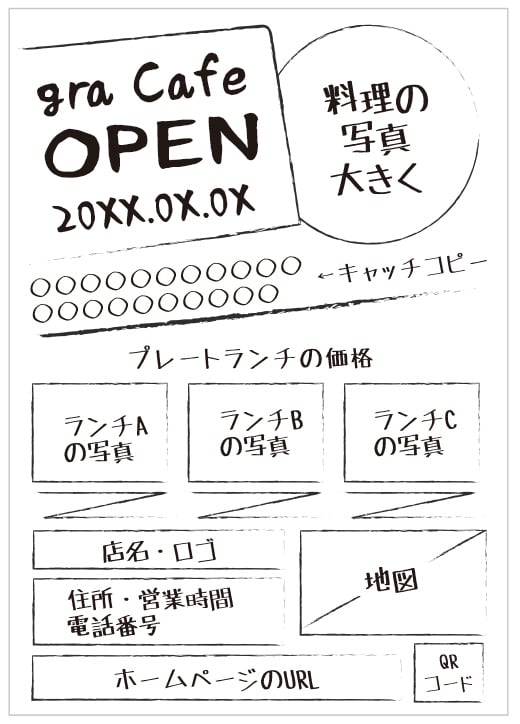 gra Cafe
OPEN
20XX.0X.0X
料理の
写真
大きく
○○○○○○○○○○○
○○○○○○○○○○
←キャッチコピー
プレートランチの価格
ランチA
の写真
ランチB
の写真
ランチC
の写真
店名・ロゴ
住所・営業時間
電話番号
地図
ホームページのURL
QR
コード